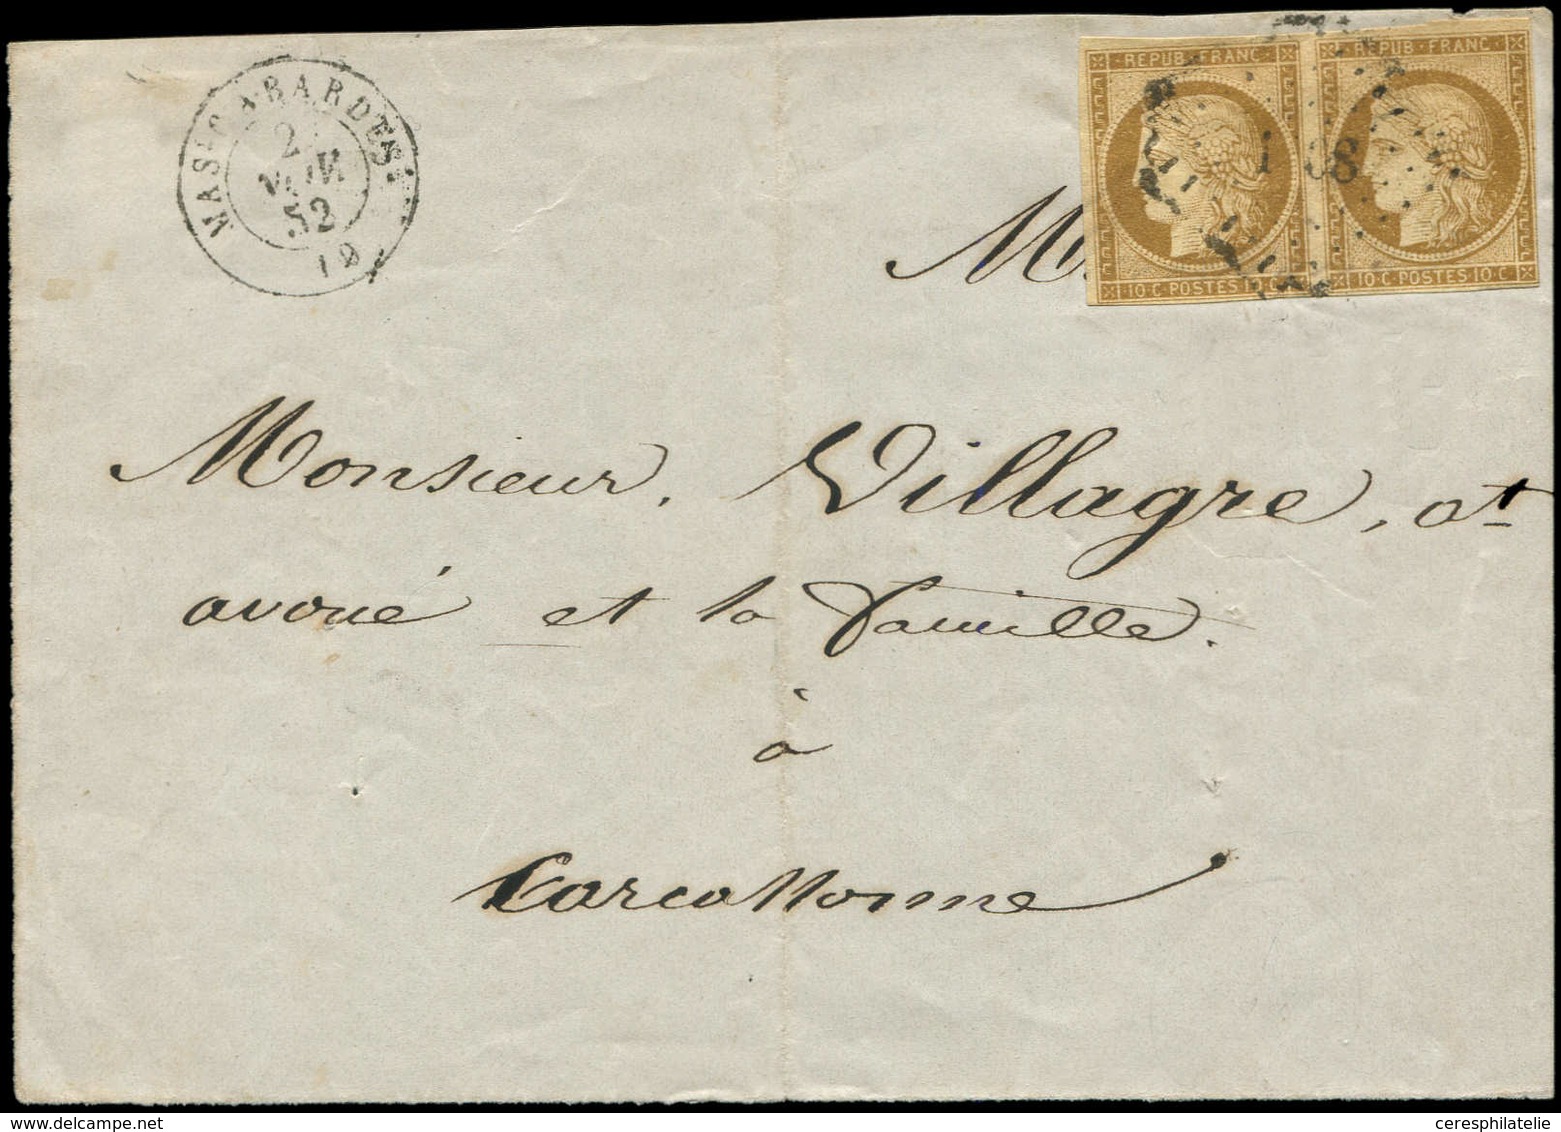 MAS-CABARDES
2
NOV
52
(10)
REPUB·FRANC
REPUB·FRANC
10·C·POSTES·10·C
10·C·POSTES·10·C
M
Monsieur, Villagre, at
avoué et la famille.
à
Carcassonne
ceresphilatelie